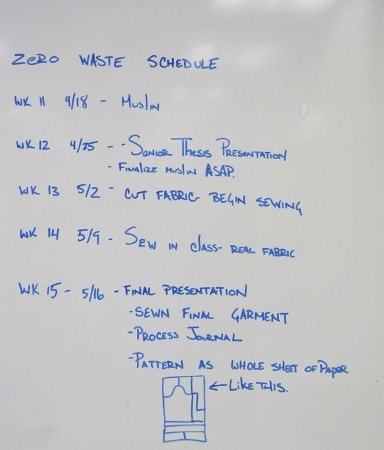 ZERO WASTE SCHEDULE
WK 11 4/18 - MUSLIN
WK 12 4/25 - - SENIOR THESIS PRESENTATION
- FINALIZE MUSLIN ASAP.
WK 13 5/2 - CUT FABRIC BEGIN SEWING
WK 14 5/9 - SEW IN CLASS - REAL FABRIC
WK 15 - 5/16 - FINAL PRESENTATION
- SEWN FINAL GARMENT
- PROCESS JOURNAL
- PATTERN AS WHOLE SHEET OF PAPER
← LIKE THIS.